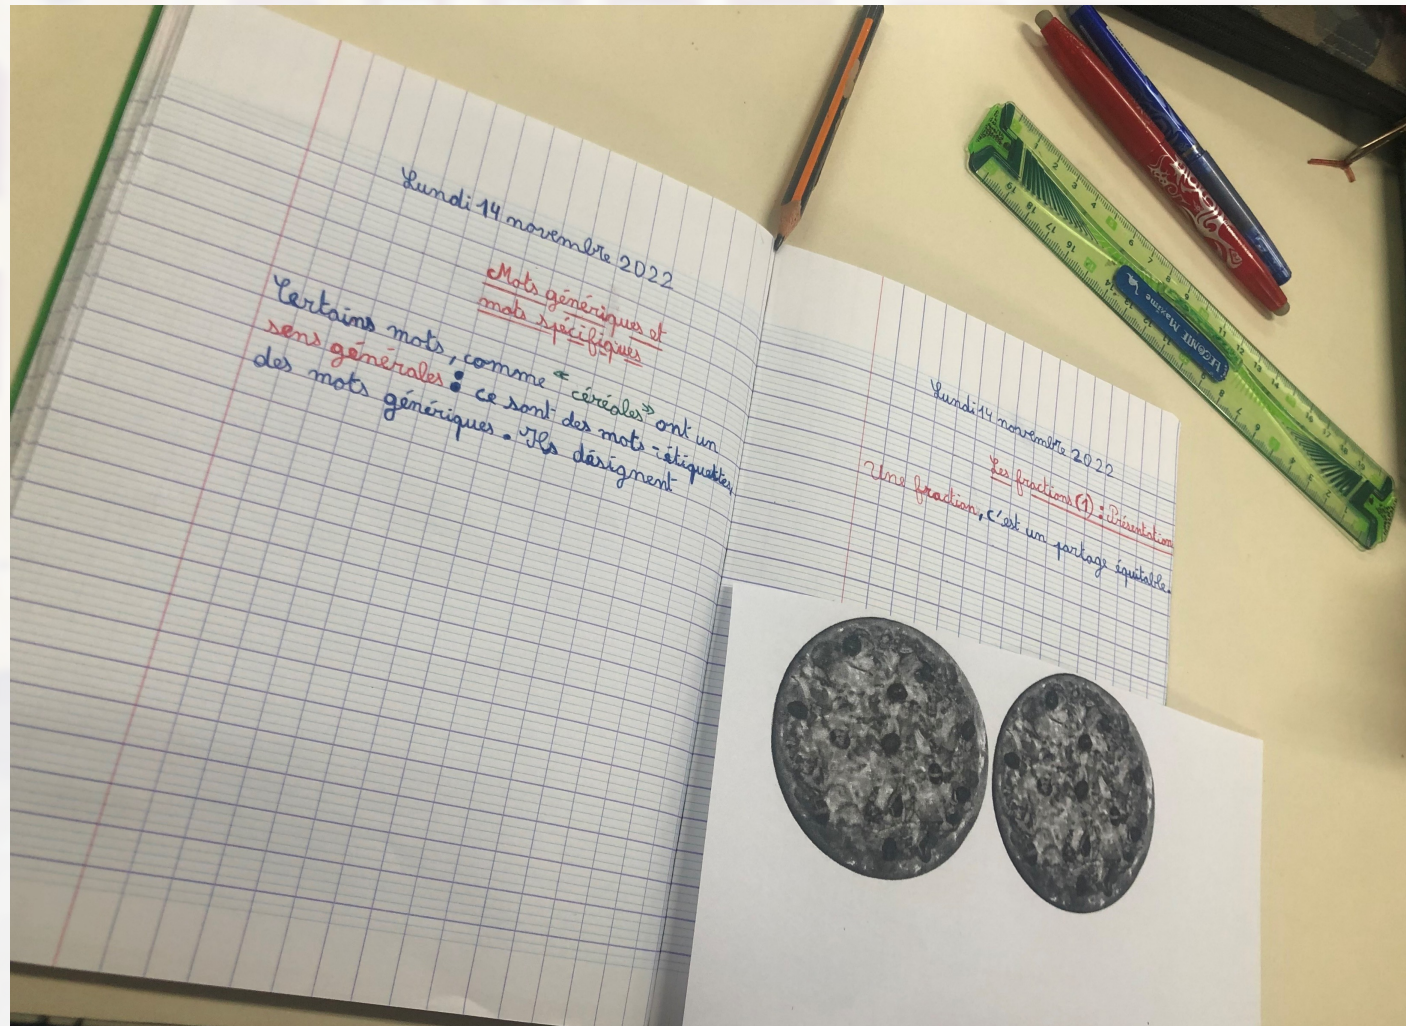 Lundi 14 novembre 2022
Mots génériques et
mots spécifiques
Certains mots, comme « céréales » ont un
sens générales : ce sont des mots-étiquettes,
des mots génériques. Ils désignent
Lundi 14 novembre 2022
Les fractions (1) : Présentation
Une fraction, c'est un partage équitable.
LECOMTE Maxime